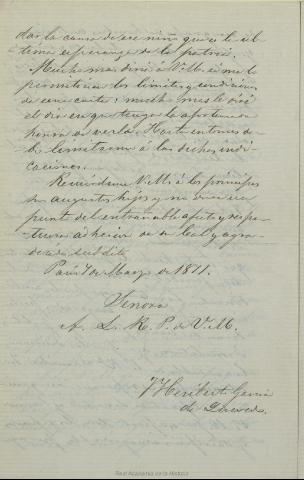 dar la causa de ese niño que es la úl-
tima esperanza de la patria.
Mucho mas diria á V.M. si me lo
permitieran los límites y condiciones
de una carta; mucho mas le diré
el dia en que tenga la afortunada
honra de verla. Hasta entonces de-
bo limitarme á las dichas indi-
caciones.
Recuérdeme V.M. á los príncipes
sus augustos hijos y no dude un
punto del entrañable afecto y respe-
tuosa adhesion de su leal y agra-
decido súbdito
Paris 7 de Marzo de 1871.
Señora
A. L. R. P. de V.M.
J Heriberto Garcia
de Quevedo.
Real Academia de la Historia